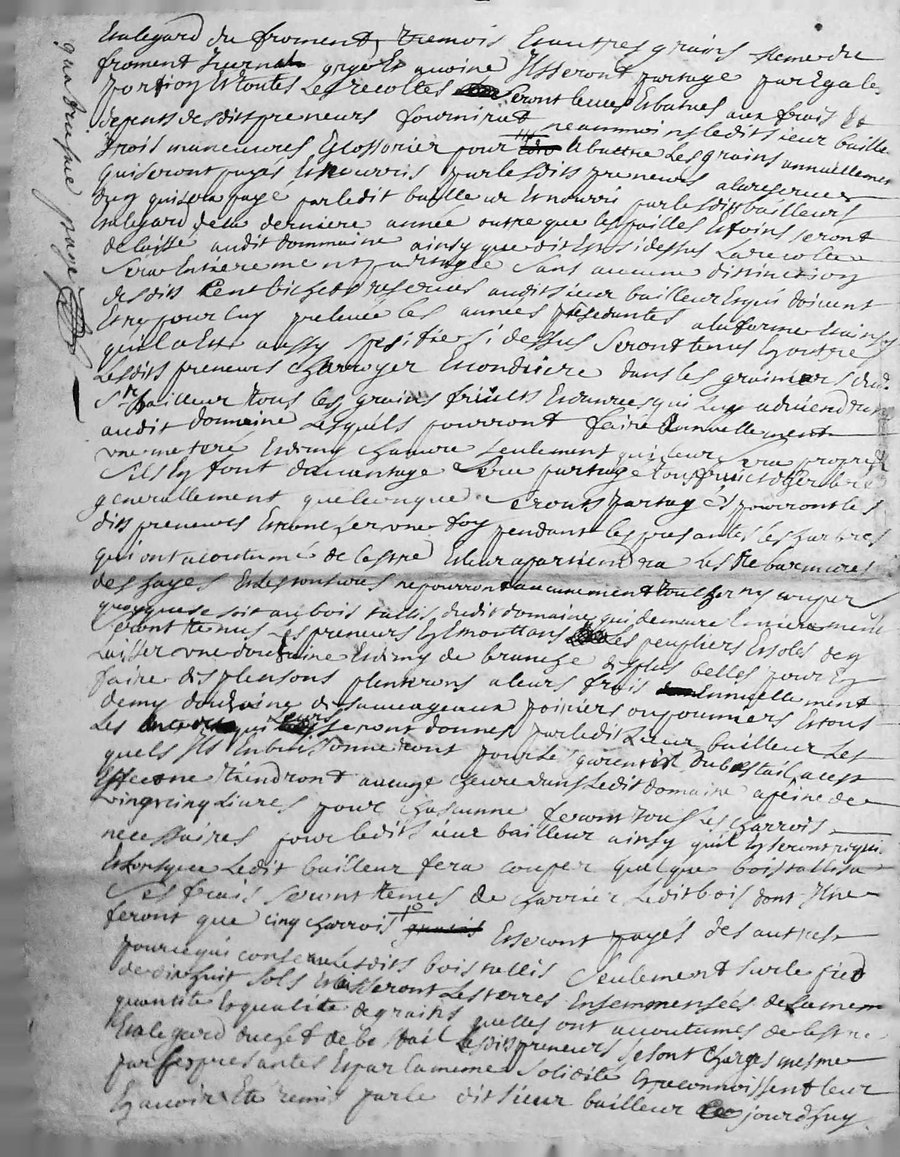 quatriesme page
Et alegard du froment, tremois Et autres grains
froment yvernal orge et avoine Ils seront partagé par Egale
portion Et toutes Les recoltes seront levees Et batues aux frais Et
depents desdits preneurs fournira neanmoins ledit sieur bailleur
trois maneuvres pour battre Les grains annuellement
qui seront payés Et nourris par lesdits preneurs a la reserve
dun qui sera payé par ledit bailleur Et nourri par lesdits bailleurs
Et alegard de la derniere année outre que les pailles Et foins seront
de laissé audit dommaine ainsy que dit Est si dessus La recolte
sera Entierement partagée sans aucune distinction
desdits cent bichets reservés audit sieur bailleur Et qui doivent
Etre pour luy prelevée les années presedantes a la forme
quil a Eté aussy si dessus seront tenus En outre
Lesdits preneurs charroyer Et conduire dans les greniers dud
Sr bailleur tous les grains fruits Et danrées qui luy adviendront
audit domaine Lesquels pourront faire annuellement
une meteré Et demy chanvre seulement qui leur sera propre
Sils En font davantage sera partagé
generallement quelconque seront partagés pourront les
dits preneurs Etroncher une fois pendant les presantes les arbres
qui ont acoutumé de lestre Et leur apartiendra Les
des hayes Et ne pourront aucunement toucher ny couper
quoy que ce soit au bois taillis dudit domaine qui demeure
seront tenus Les preneurs En Emottans les peupliers Et soles den
Laisser une douzaine Et demy de branche des plus belles pour En
faire des plensons planterons a leurs frais annuellement
demy douzaine de sauvageaux poiriers ou pommiers Et tous
Les qui Leurs seront donnés par ledit sieur bailleur Les
quels Ils Enbuissonneront pour Les garentir du bestail a cest
Effet ne tiendront aucune chevre dans Ledit domaine a peine de
vingt cinq Livres pour chacunne feront tous Les charrois
necessaires pour ledit sieur bailleur ainsy quil En seront requis
Et lorsque Ledit bailleur fera couper quelque bois taillis a
ses frais seront tenus de charrier Ledit bois dont Ils ne
feront que cinq charrois Et seront payés des autres
pour ce qui conserne Lesdits bois taillis seulement sur le pied
de dix huit sols Et Laisseront Les terres Ensemmensées de la mem
quantité Et qualité de grains quelles ont acoutumés de lestre
Et alegard du chet de bestail Lesdits preneurs se sont chargés mesme
par ses presantes Et par la meme solidité Et reconnoissent leur
En avoir Eté remis par le dit sieur bailleur ce jourdhuy